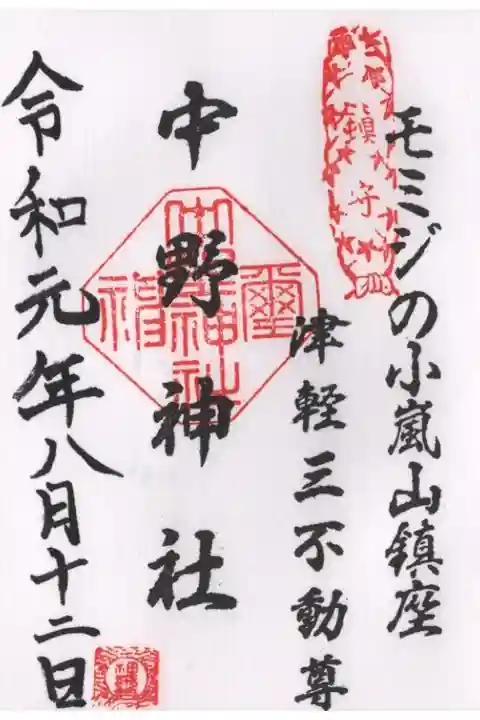 モミジの小嵐山鎮座
鎮守
津軽三不動尊
中野神社
令和元年八月十二日